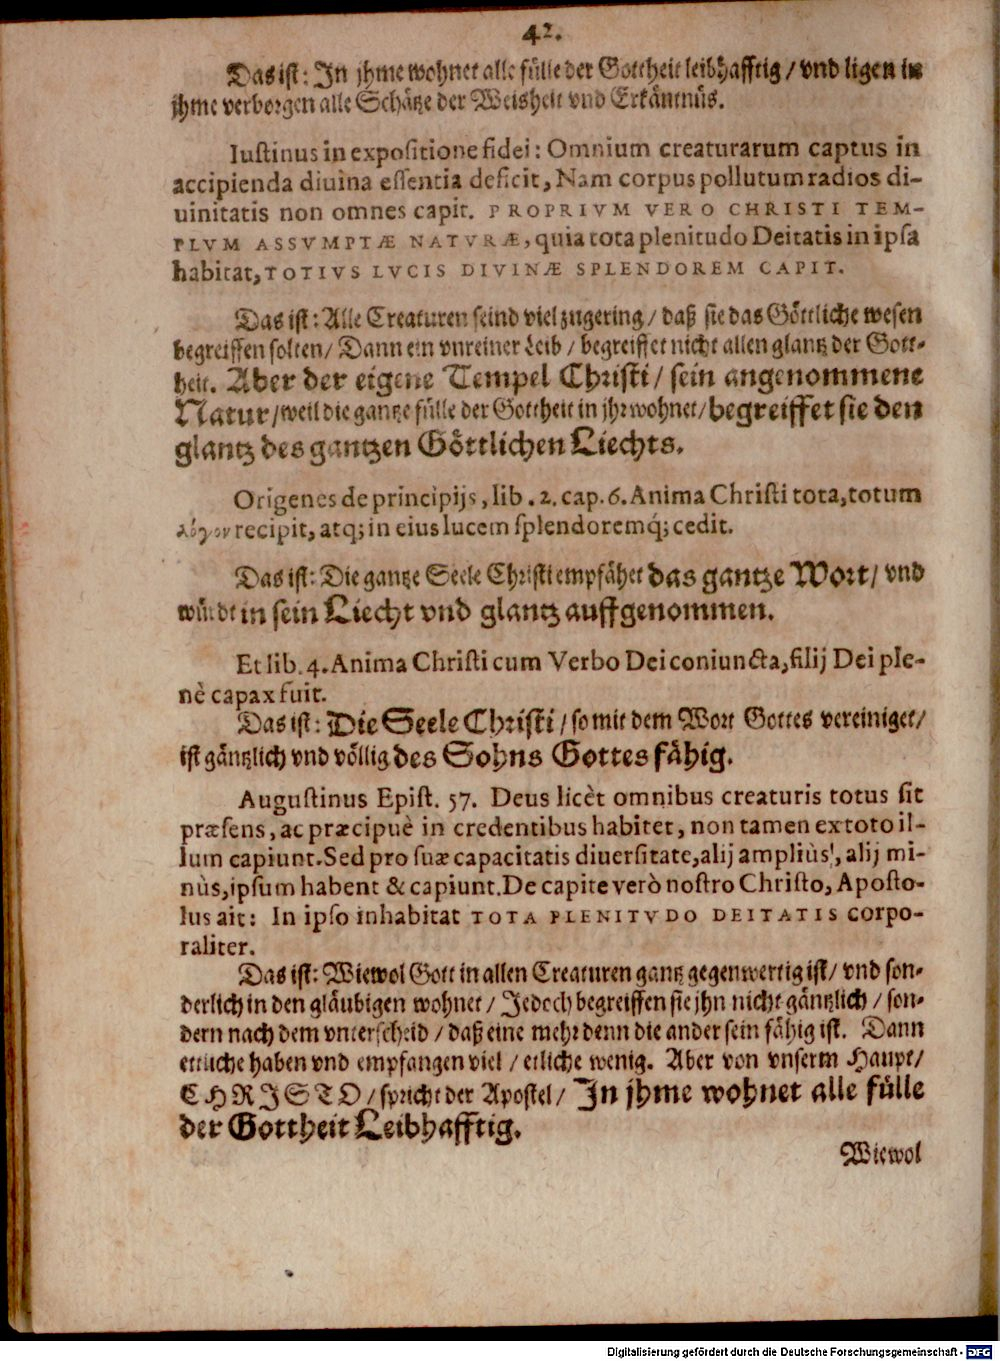 42.
Das ist: In jhme wohnet alle fülle der Gottheit leibhafftig / vnd ligen in
jhme verborgen alle Schätze der Weisheit vnd Erkäntnüs.
Iustinus in expositione fidei: Omnium creaturarum captus in
accipienda diuina essentia deficit, Nam corpus pollutum radios di-
uinitatis non omnes capit. PROPRIVM VERO CHRISTI TEM-
PLVM ASSVMPTÆ NATVRÆ, quia tota plenitudo Deitatis in ipsa
habitat, TOTIVS LVCIS DIVINÆ SPLENDOREM CAPIT.
Das ist: Alle Creaturen seind viel zugering / daß sie das Göttliche wesen
begreiffen solten / Dann ein vnreiner Leib / begreiffet nicht allen glantz der Gott-
heit. Aber der eigene Tempel Christi / sein angenommene
Natur / weil die gantze fülle der Gottheit in jhr wohnet / begreiffet sie den
glantz des gantzen Göttlichen Liechts.
Origenes de principijs, lib. 2. cap. 6. Anima Christi tota, totum
λόγον recipit, atq; in eius lucem splendoremq́; cedit.
Das ist: Die gantze Seele Christi empfähet das gantze Wort / vnd
würdt in sein Liecht vnd glantz auffgenommen.
Et lib. 4. Anima Christi cum Verbo Dei coniuncta, filij Dei ple-
nè capax fuit.
Das ist: Die Seele Christi / so mit dem Wort Gottes vereiniget /
ist gäntzlich vnd völlig des Sohns Gottes fähig.
Augustinus Epist. 57. Deus licèt omnibus creaturis totus sit
præsens, ac præcipuè in credentibus habitet, non tamen ex toto il-
lum capiunt. Sed pro suæ capacitatis diuersitate, alij ampliùs, alij mi-
nùs, ipsum habent & capiunt. De capite verò nostro Christo, Aposto-
lus ait: In ipso inhabitat TOTA PLENITVDO DEITATIS corpo-
raliter.
Das ist: Wiewol Gott in allen Creaturen gantz gegenwertig ist / vnd son-
derlich in den gläubigen wohnet / Jedoch begreiffen sie jhn nicht gäntzlich / son-
dern nach dem vnterscheid / daß eine mehr denn die ander sein fähig ist. Dann
ettliche haben vnd empfangen viel / etliche wenig. Aber von vnserm Haupt /
CHRISTO / spricht der Apostel / In jhme wohnet alle fülle
der Gottheit Leibhafftig.
Wiewol
Digitalisierung gefördert durch die Deutsche Forschungsgemeinschaft - DFG